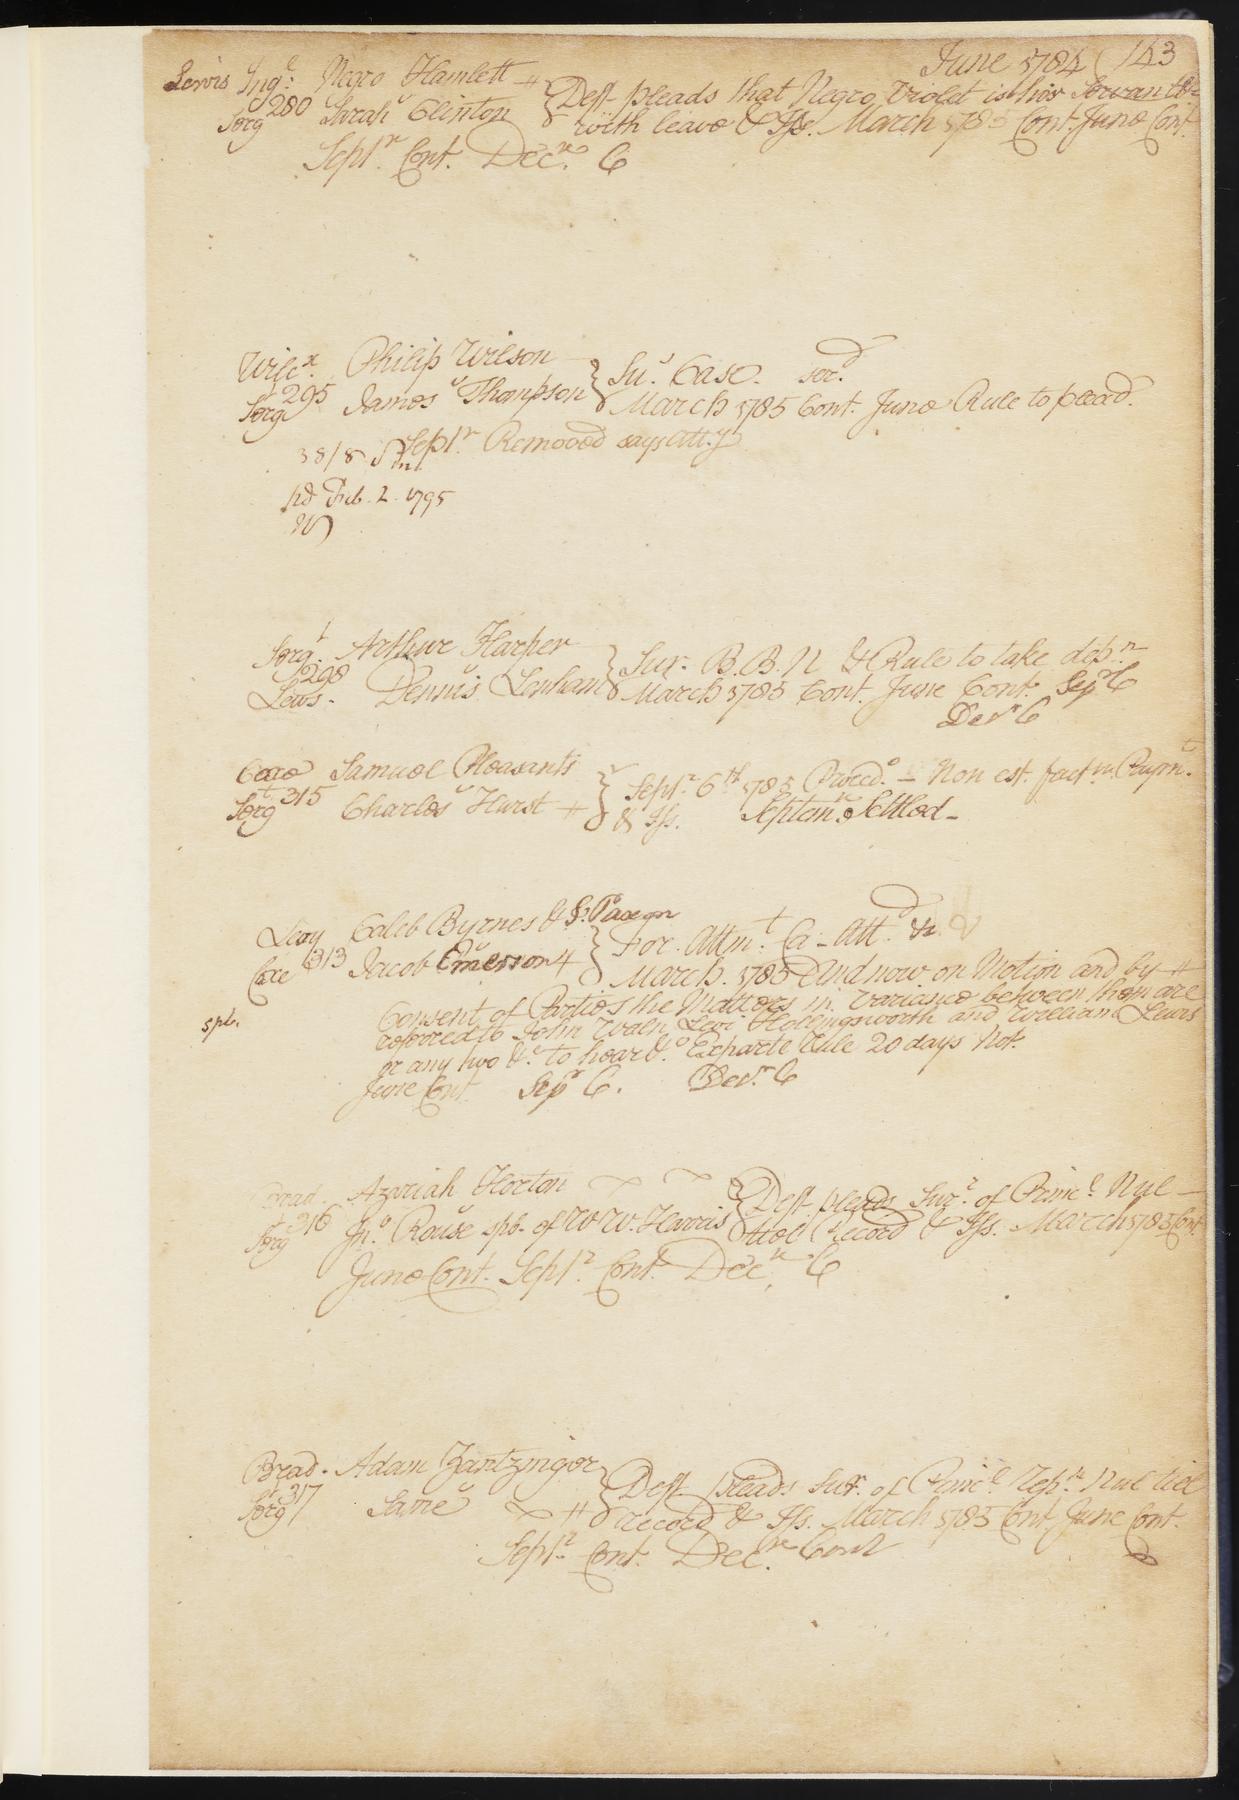 June 1784 (143
Lewis Ing.e Negro Hamlett
Serg 280 v Sarah Clinton
Deft pleads that Negro Violet is his Servant &c
with leave & Iss. March 1785 Cont. June Cont.
Septr. Cont. Decr. C
Wilcx. Philip Wilson
Sergt 295 v James Thompson
Su. Case. ser.d
March 1785 Cont. June Rule to plead.
Septr. Removed says Att.y
38/8
pd Feb. 2. 1795
Sergt. Arthur Harper
298 v
Lews. Dennis Lenham
Sur. B.B.N & Rule to take depn
March 1785 Cont. June Cont. Sepr C
Decr C
Coxe Samuel Pleasants
Sergt 315 v Charles Hurst
Septr 6th 1785 Proceed.o — Non est factm. Paymt.
& Iss. Septemr. Settled —
Levy Caleb Byrnes & S. Paxson
Coxe 313 v Jacob Emerson
For. Attmt. Ca - Att.d &c
March. 1785 And now on Motion and by
Consent of Parties the Matters in variance between them are
spb.
referred to John Waln Levi Hollingsworth and William Lewis
or any two &c to hear &c Exparte Rule 20 days Not.
June Cont. Sepr C. Decr. C
Brad. Azariah Horton
Sergt 316 v Jno. Rouse spb. of W W. Harris
Deft. pleads Surr. of Princl. Nul
tiel Record & Iss. March 1785 Cont.
June Cont. Septr. Cont. Decr. C
Brad. Adam Zantzinger
Sergt 317 v Same
Deft pleads Surr. of Princl Repn. Nul tiel
record & Iss. March 1785 Cont June Cont.
Septr. Cont. Decr. Cont